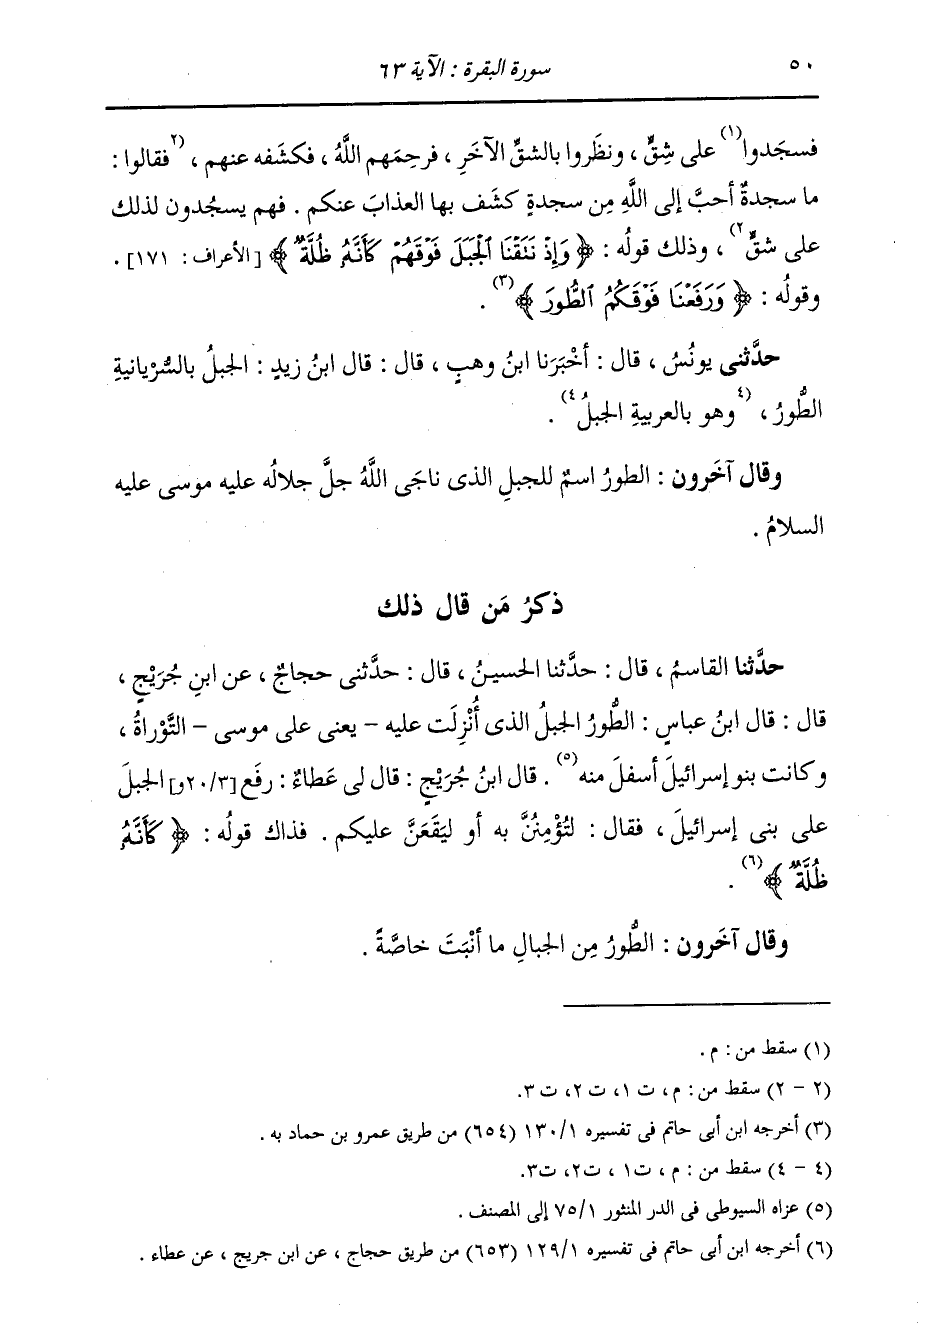 ٥٠
سورة البقرة : الآية ٦٣
فسجَدوا(١) على شِقٍّ ، ونظَروا بالشقِّ الآخَرِ ، فرحِمَهم اللَّهُ ، فكشَفه عنهم ، (٢فقالوا :
ما سجدةٌ أحبَّ إلى اللَّهِ مِن سجدةٍ كشَف بها العذابَ عنكم . فهم يسجُدون لذلك
على شقٍّ٢) ، وذلك قولُه : ﴿ وَإِذْ نَتَقْنَا الْجَبَلَ فَوْقَهُمْ كَأَنَّهُ ظُلَّةٌ ﴾ [الأعراف : ١٧١] .
وقولُه : ﴿ وَرَفَعْنَا فَوْقَكُمُ الطُّورَ ﴾(٣) .
حدَّثنى يونُسُ ، قال : أخْبَرَنا ابنُ وهبٍ ، قال : قال ابنُ زيدٍ : الجبلُ بالسُّرْيانيةِ
الطُّورُ ، (٤وهو بالعربيةِ الجبلُ٤) .
وقال آخَرون : الطورُ اسمٌ للجبلِ الذى ناجَى اللَّهُ جلَّ جلالُه عليه موسى عليه
السلامُ .
ذكرُ مَن قال ذلك
حدَّثنا القاسمُ ، قال : حدَّثنا الحسينُ ، قال : حدَّثنى حجاجٌ ، عن ابنِ جُرَيْجٍ ،
قال : قال ابنُ عباسٍ : الطُّورُ الجبلُ الذى أُنْزِلَت عليه – يعنى على موسى – التَّوْراةُ ،
وكانت بنو إسرائيلَ أسفلَ منه(٥) . قال ابنُ جُرَيْجٍ : قال لى عَطاءٌ : رفَع [٢٠/٣و] الجبلَ
على بنى إسرائيلَ ، فقال : لتُؤْمِنُنَّ به أو ليَقَعَنَّ عليكم . فذاك قولُه : ﴿ كَأَنَّهُ
ظُلَّةٌ ﴾(٦) .
وقال آخَرون : الطُّورُ مِن الجبالِ ما أنْبَتَ خاصَّةً .
(١) سقط من : م .
(٢ – ٢) سقط من : م ، ت ١، ت ٢، ت ٣.
(٣) أخرجه ابن أبى حاتم فى تفسيره ١٣٠/١ (٦٥٤) من طريق عمرو بن حماد به .
(٤ – ٤) سقط من : م ، ت١ ، ت٢، ت٣.
(٥) عزاه السيوطى فى الدر المنثور ٧٥/١ إلى المصنف .
(٦) أخرجه ابن أبى حاتم فى تفسيره ١٢٩/١ (٦٥٣) من طريق حجاج ، عن ابن جريج ، عن عطاء .